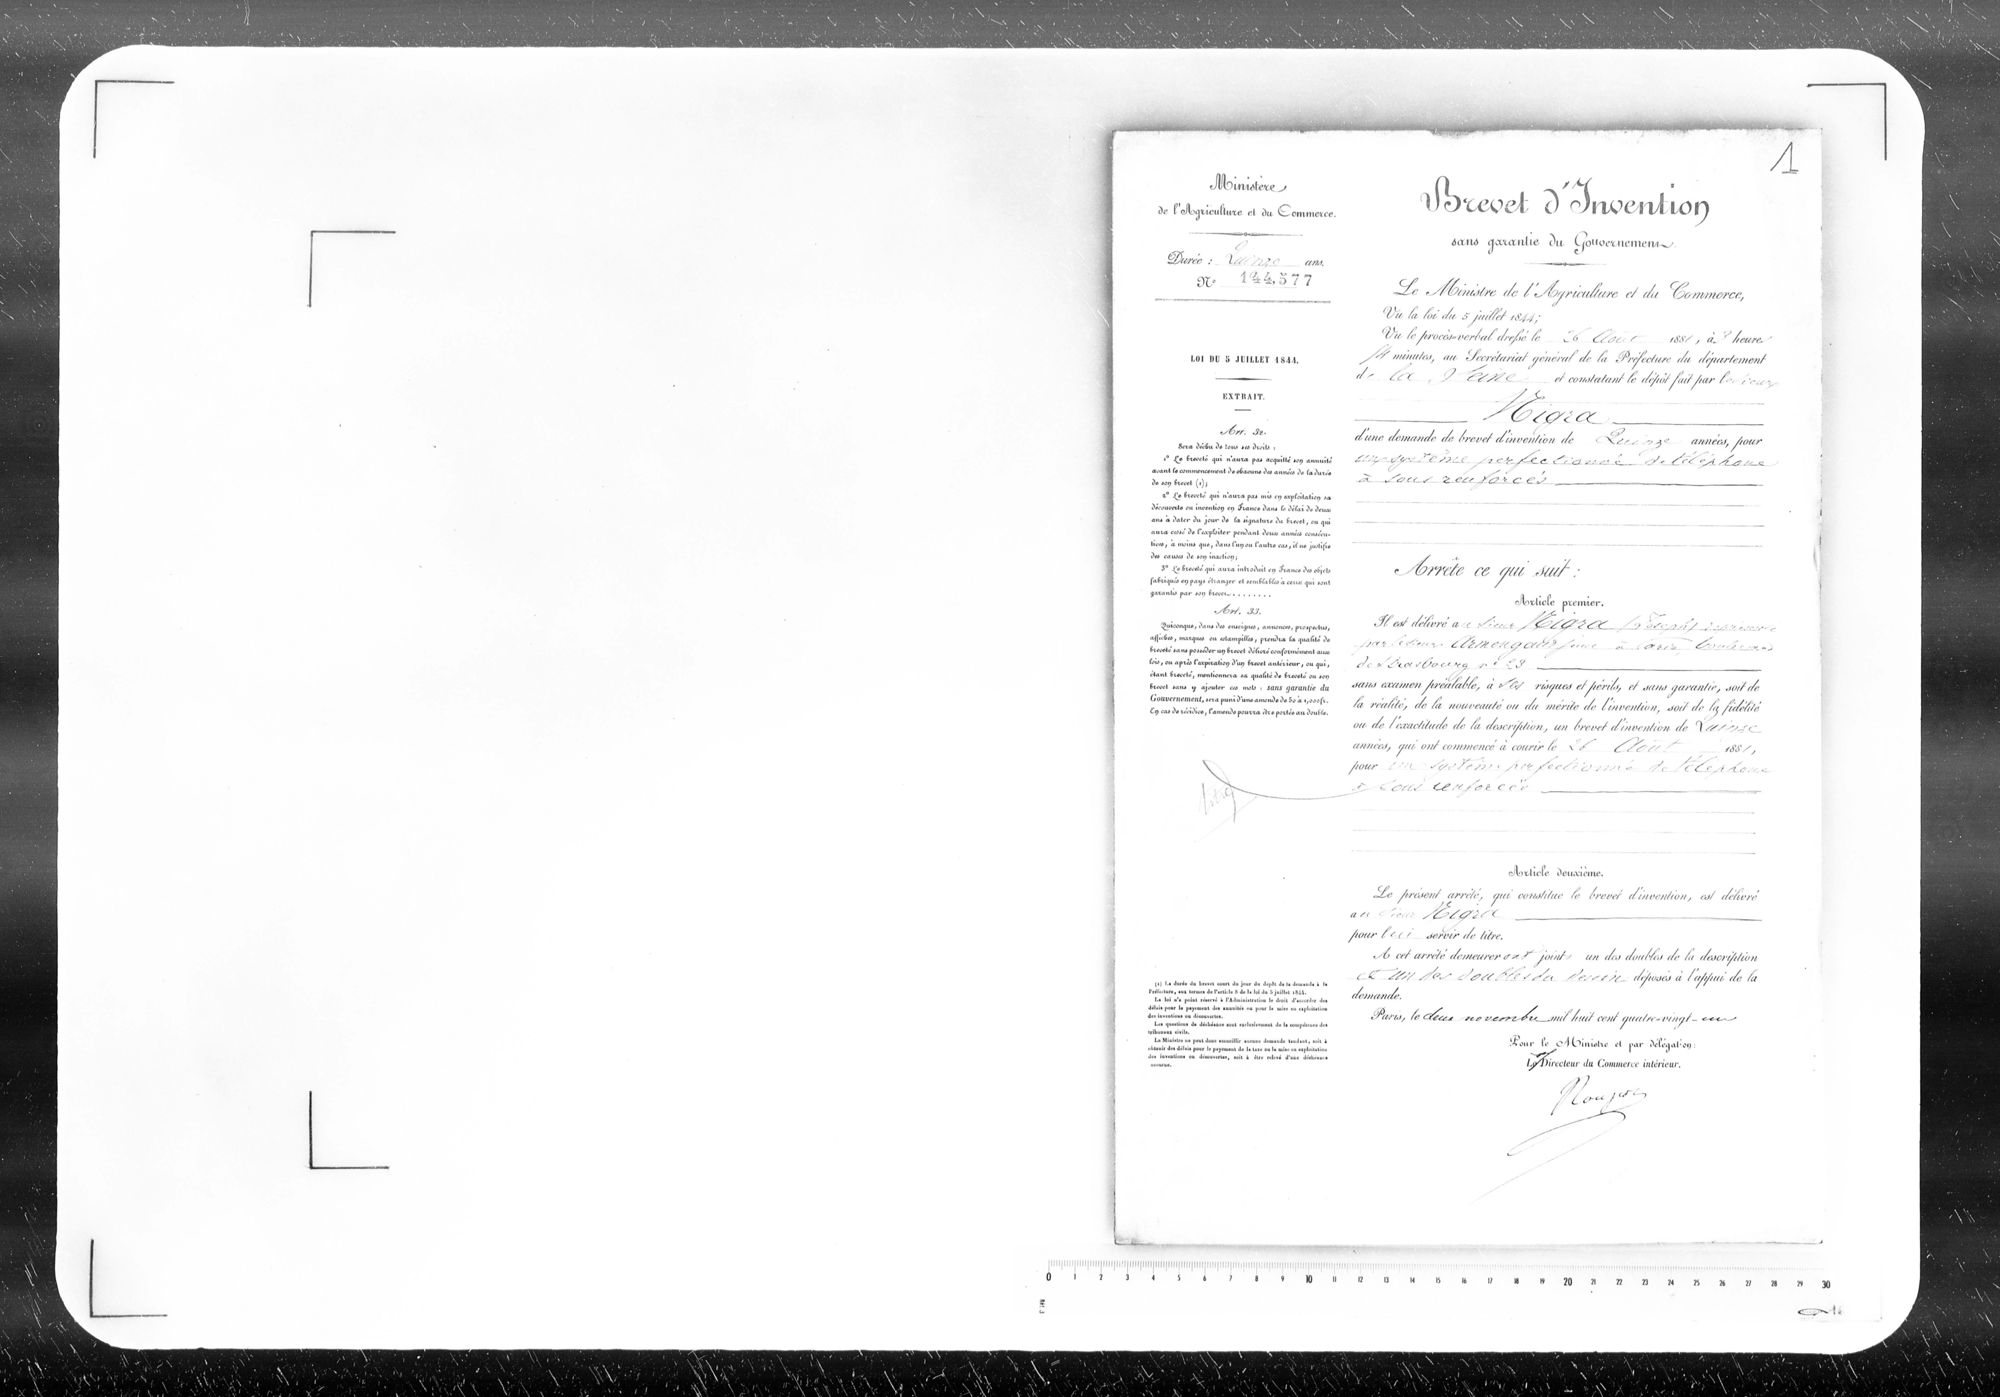 1
Ministère
de l'Agriculture et du Commerce.
Durée : Quinze ans.
N° 144,577
LOI DU 5 JUILLET 1844.
EXTRAIT.
Art. 32.
Sera déchu de tous ses droits :
1° Le breveté qui n'aura pas acquitté son annuité
avant le commencement de chacune des années de la durée
de son brevet (1);
2° Le breveté qui n'aura pas mis en exploitation sa
découverte ou invention en France dans le délai de deux
ans à dater du jour de la signature du brevet, ou qui
aura cessé de l'exploiter pendant deux années consécu-
tives, à moins que, dans l'un ou l'autre cas, il ne justifie
des causes de son inaction;
3° Le breveté qui aura introduit en France des objets
fabriqués en pays étranger et semblables à ceux qui sont
garantis par son brevet........
Art. 33.
Quiconque, dans des enseignes, annonces, prospectus,
affiches, marques ou estampilles, prendra la qualité de
breveté sans posséder un brevet délivré conformément aux
lois, ou après l'expiration d'un brevet antérieur, ou qui,
étant breveté, mentionnera sa qualité de breveté ou son
brevet sans y ajouter ces mots : sans garantie du
Gouvernement, sera puni d'une amende de 50 à 1,000 fr.
En cas de récidive, l'amende pourra être portée au double.
(1) La durée du brevet court du jour du dépôt de la demande à la
Préfecture, aux termes de l'article 8 de la loi du 5 juillet 1844.
La loi n'a point réservé à l'Administration le droit d'accorder des
délais pour le payement des annuités ou pour la mise en exploitation
des inventions ou découvertes.
Les questions de déchéance sont exclusivement de la compétence des
tribunaux civils.
Le Ministre ne peut donc accueillir aucune demande tendant, soit à
obtenir des délais pour le payement de la taxe ou la mise en exploitation
des inventions ou découvertes, soit à être relevé d'une déchéance
encourue.
Brevet d'Invention
sans garantie du Gouvernement
Le Ministre de l'Agriculture et du Commerce,
Vu la loi du 5 juillet 1844;
Vu le procès-verbal dressé le 26 Août 1881, à 3 heures
minutes, au Secrétariat général de la Préfecture du département
de la Seine et constatant le dépôt fait par le sieur
Nigra
d'une demande de brevet d'invention de Quinze années, pour
un système perfectionné de téléphone
à sons renforcés
Arrête ce qui suit :
Article premier.
Il est délivré au sieur Nigra (Joseph) représenté
par le sieur Armengaud jeune à Paris, boulevard
de Strasbourg n° 23
sans examen préalable, à ses risques et périls, et sans garantie, soit de
la réalité, de la nouveauté ou du mérite de l'invention, soit de la fidélité
ou de l'exactitude de la description, un brevet d'invention de Quinze
années, qui ont commencé à courir le 26 Août 1881,
pour un système perfectionné de téléphone
à sons renforcés
Article deuxième.
Le présent arrêté, qui constitue le brevet d'invention, est délivré
au sieur Nigra
pour lui servir de titre.
A cet arrêté demeureront joints un des doubles de la description
et un des doubles du dessin déposés à l'appui de la
demande.
Paris, le deux novembre mil huit cent quatre-vingt-un
Pour le Ministre et par délégation :
Le Directeur du Commerce intérieur.
0 1 2 3 4 5 6 7 8 9 10 11 12 13 14 15 16 17 18 19 20 21 22 23 24 25 26 27 28 29 30